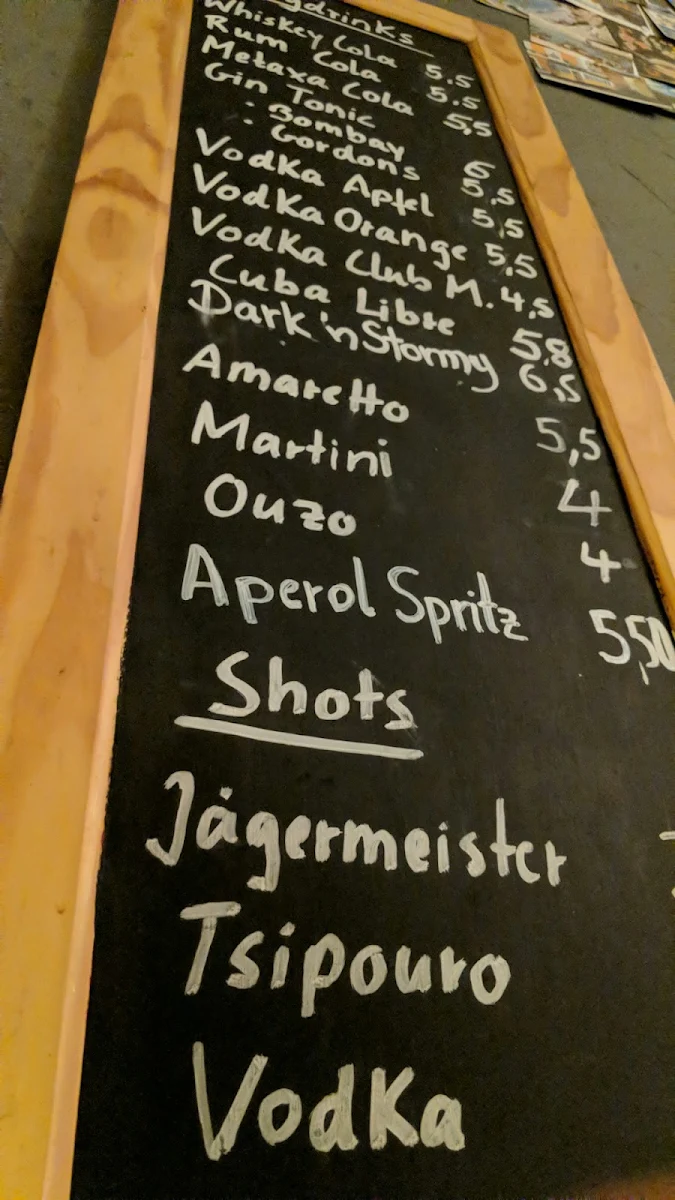 Whiskey Cola 5.5
Rum Cola 5.5
Metaxa Cola 5,5
Gin Tonic
: Bombay 6
: Gordons 5,5
Vodka Apfel 5,5
Vodka Orange 5,5
Vodka Club M. 4,5
Cuba Libre 5,8
Dark 'n Stormy 6,5
Amaretto 5,5
Martini 4
Ouzo 4
Aperol Spritz 5,50
Shots
Jägermeister
Tsipouro
Vodka